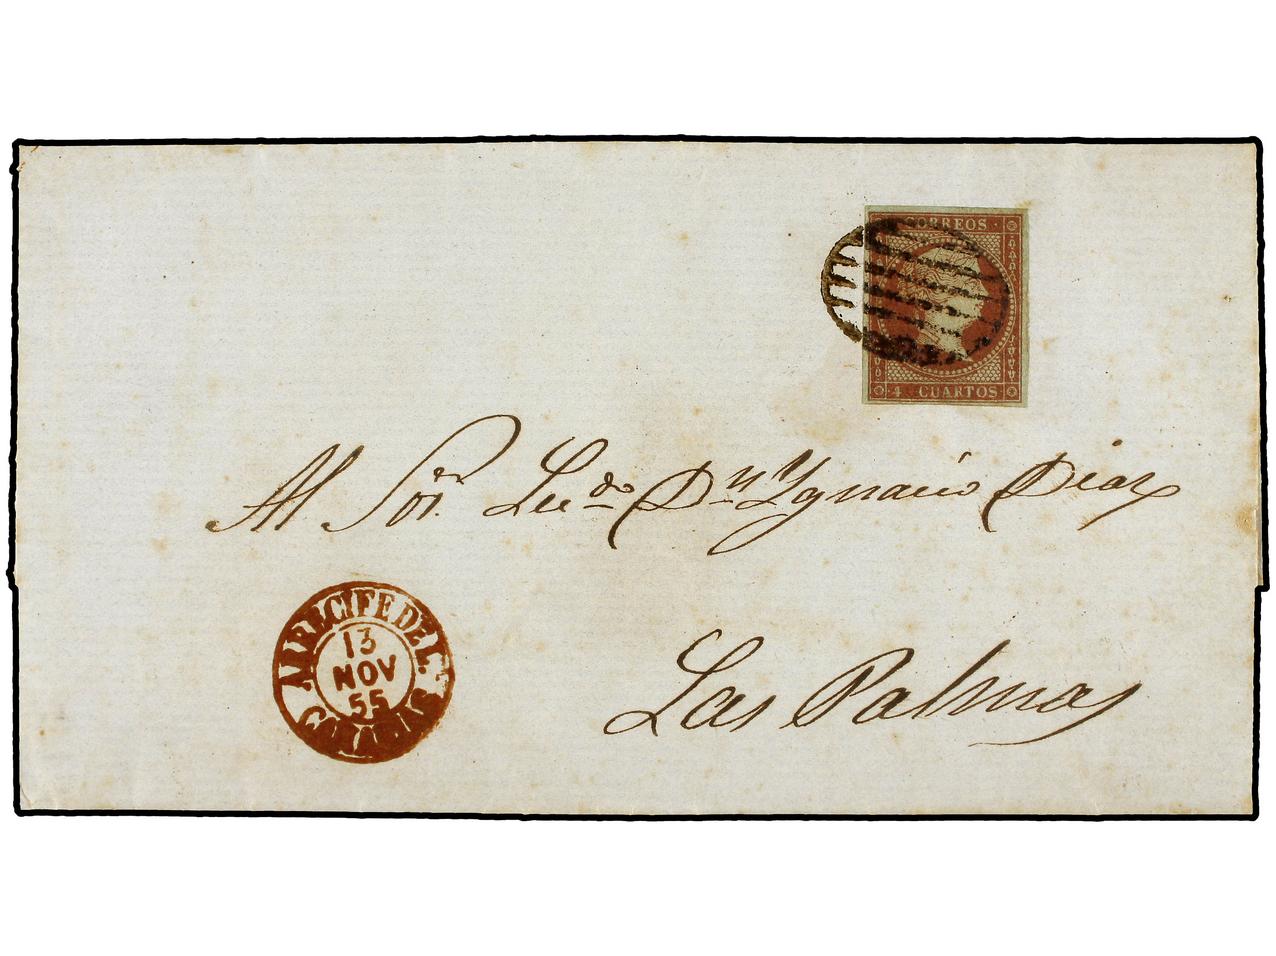 CORREOS
4 CUARTOS
Al Sor. Licdo Dn Ygnacio Diaz
ARRECIFE DE L.
13
NOV
55
CANARIAS
Las Palmas